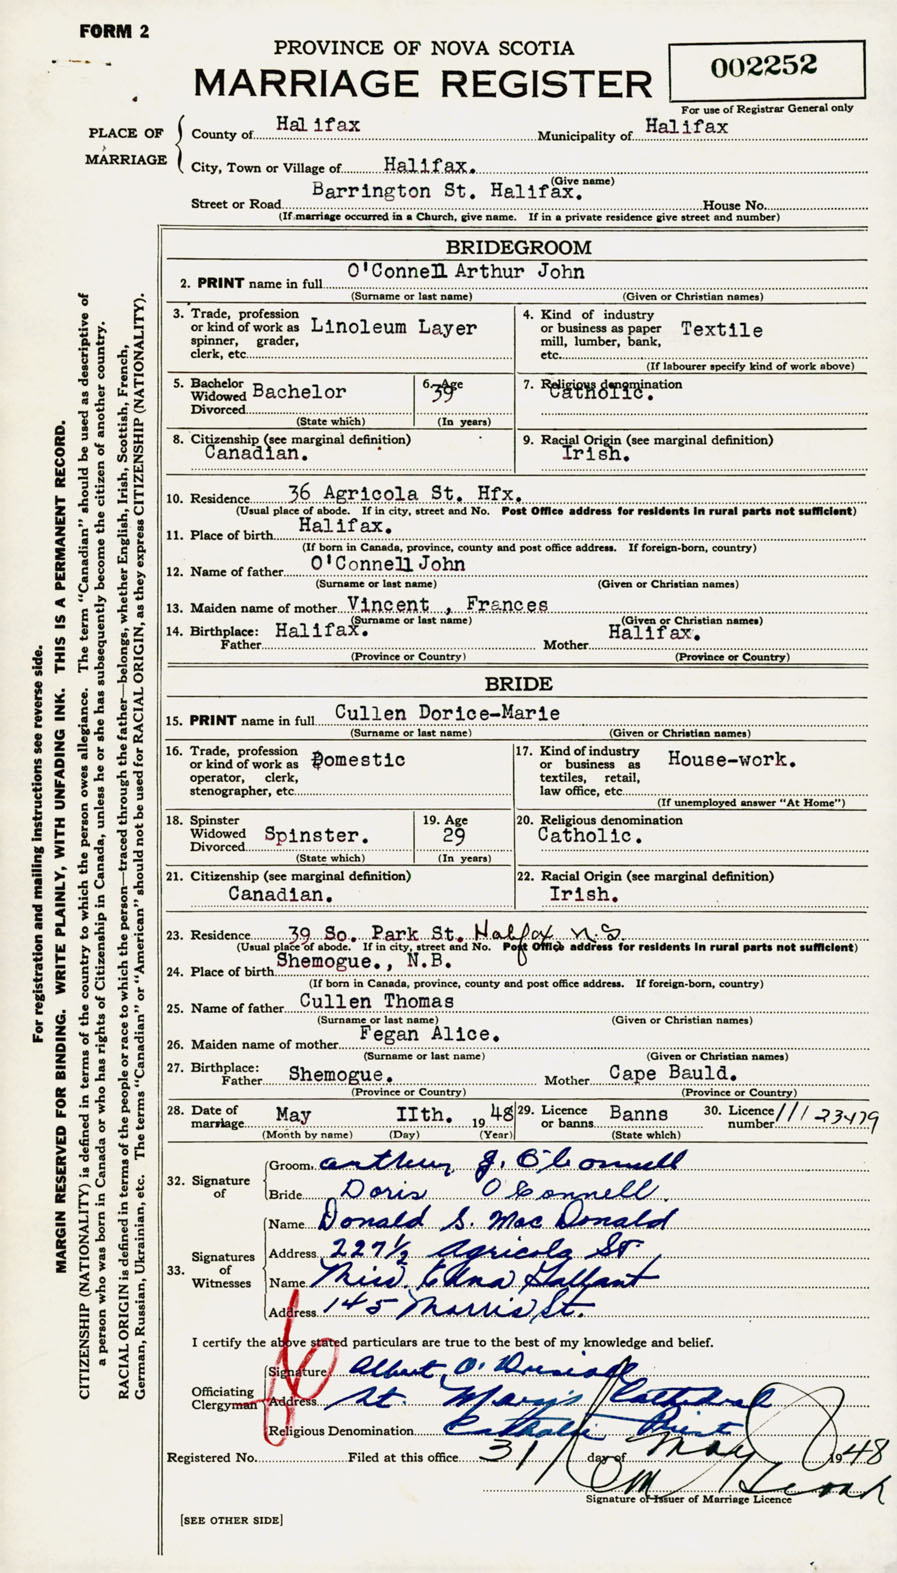 FORM 2
PROVINCE OF NOVA SCOTIA
MARRIAGE REGISTER
002252
For use of Registrar General only
PLACE OF MARRIAGE
County of Halifax Municipality of Halifax
City, Town or Village of Halifax.
(Give name)
Barrington St. Halifax.
Street or Road House No.
(If marriage occurred in a Church, give name. If in a private residence give street and number)
BRIDEGROOM
2. PRINT name in full O'Connell Arthur John
(Surname or last name) (Given or Christian names)
3. Trade, profession or kind of work as spinner, grader, clerk, etc. Linoleum Layer
4. Kind of industry or business as paper mill, lumber, bank, etc. Textile
(If labourer specify kind of work above)
5. Bachelor Widowed Divorced Bachelor
(State which)
6. Age 39
(In years)
7. Religious denomination Catholic.
8. Citizenship (see marginal definition)
Canadian.
9. Racial Origin (see marginal definition)
Irish.
10. Residence 36 Agricola St. Hfx.
(Usual place of abode. If in city, street and No. Post Office address for residents in rural parts not sufficient)
11. Place of birth Halifax.
(If born in Canada, province, county and post office address. If foreign-born, country)
12. Name of father O'Connell John
(Surname or last name) (Given or Christian names)
13. Maiden name of mother Vincent , Frances
(Surname or last name) (Given or Christian names)
14. Birthplace: Father Halifax. Mother Halifax.
(Province or Country) (Province or Country)
BRIDE
15. PRINT name in full Cullen Dorice-Marie
(Surname or last name) (Given or Christian names)
16. Trade, profession or kind of work as operator, clerk, stenographer, etc. Domestic
17. Kind of industry or business as textiles, retail, law office, etc. House-work.
(If unemployed answer "At Home")
18. Spinster Widowed Divorced Spinster.
(State which)
19. Age 29
(In years)
20. Religious denomination
Catholic.
21. Citizenship (see marginal definition)
Canadian.
22. Racial Origin (see marginal definition)
Irish.
23. Residence 39 So. Park St. Halifax N.S
(Usual place of abode. If in city, street and No. Post Office address for residents in rural parts not sufficient)
24. Place of birth Shemogue., N.B.
(If born in Canada, province, county and post office address. If foreign-born, country)
25. Name of father Cullen Thomas
(Surname or last name) (Given or Christian names)
26. Maiden name of mother Fegan Alice.
(Surname or last name) (Given or Christian names)
27. Birthplace: Father Shemogue. Mother Cape Bauld.
(Province or Country) (Province or Country)
28. Date of marriage May IIth. 1948
(Month by name) (Day) (Year)
29. Licence or banns Banns
(State which)
30. Licence number 23479
32. Signature of
Groom Arthur J. O'Connell
Bride Doris O'Connell
33. Signatures of Witnesses
Name Donald S. MacDonald
Address 227½ Agricola St.
Name Miss. Edna Gallant
Address 145 Morris St.
I certify the above stated particulars are true to the best of my knowledge and belief.
Officiating Clergyman
Signature Albert O.
Address St. Mary's Cathedral
Religious Denomination Catholic Priest
Registered No. Filed at this office 31 day of May 1948
Signature of Issuer of Marriage Licence
[SEE OTHER SIDE]
For registration and mailing instructions see reverse side.
MARGIN RESERVED FOR BINDING. WRITE PLAINLY, WITH UNFADING INK. THIS IS A PERMANENT RECORD.
CITIZENSHIP (NATIONALITY) is defined in terms of the country to which the person owes allegiance. The term "Canadian" should be used as descriptive of
a person who was born in Canada or who has rights of Citizenship in Canada, unless he or she has subsequently become the citizen of another country.
RACIAL ORIGIN is defined in terms of the people or race to which the person—traced through the father—belongs, whether English, Irish, Scottish, French,
German, Russian, Ukrainian, etc. The terms "Canadian" or "American" should not be used for RACIAL ORIGIN, as they express CITIZENSHIP (NATIONALITY).